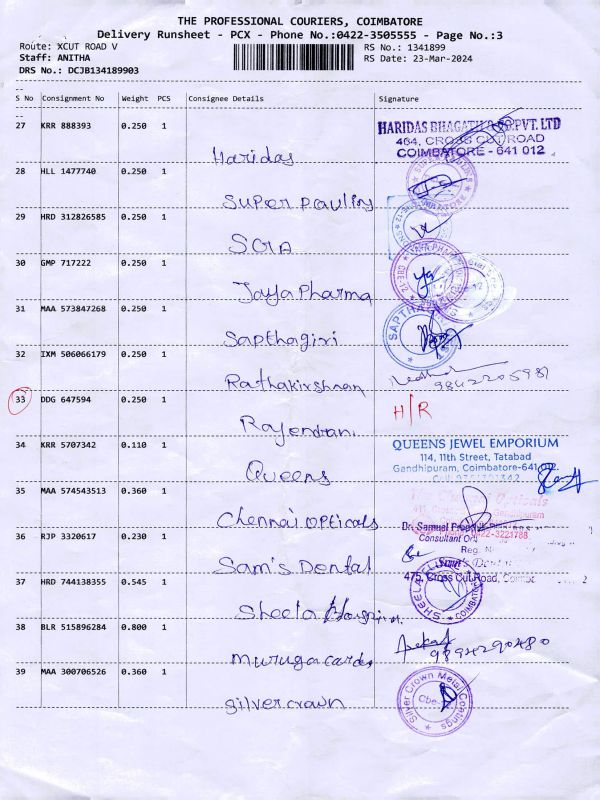 THE PROFESSIONAL COURIERS, COIMBATORE
Delivery Runsheet - PCX - Phone No.:0422-3505555 - Page No.:3
Route: XCUT ROAD V
RS No.: 1341899
Staff: ANITHA
RS Date: 23-Mar-2024
DRS No.: DCJB134189903
S No Consignment No Weight PCS Consignee Details Signature
27 KRR 888393 0.250 1
Haridas
HARIDAS BHAGATH & CO PVT. LTD
464, CROSS CUT ROAD
COIMBATORE - 641 012
28 HLL 1477740 0.250 1
Super pauling
29 HRD 312826585 0.250 1
30 GMP 717222 0.250 1
Jaya Pharma
31 MAA 573847268 0.250 1
Sapthagiri
SAPTHAGIRI
32 IXM 506066179 0.250 1
Rathakirshnan
33 DDG 647594 0.250 1
Rajendran
H/R
34 KRR 5707342 0.110 1
Queens
QUEENS JEWEL EMPORIUM
114, 11th Street, Tatabad
Gandhipuram, Coimbatore-641 012.
35 MAA 574543513 0.360 1
Chennai opticals
36 RJP 3320617 0.230 1
Sam's Dental
Dr. Samuel
Consultant
0422-3221788
Reg.
Sam's Dental
475, Cross Cut Road,
37 HRD 744138355 0.545 1
Sheela
38 BLR 515896284 0.800 1
muruga cards
9894290480
39 MAA 300706526 0.360 1
silver crown
Silver Crown Metal Coatings